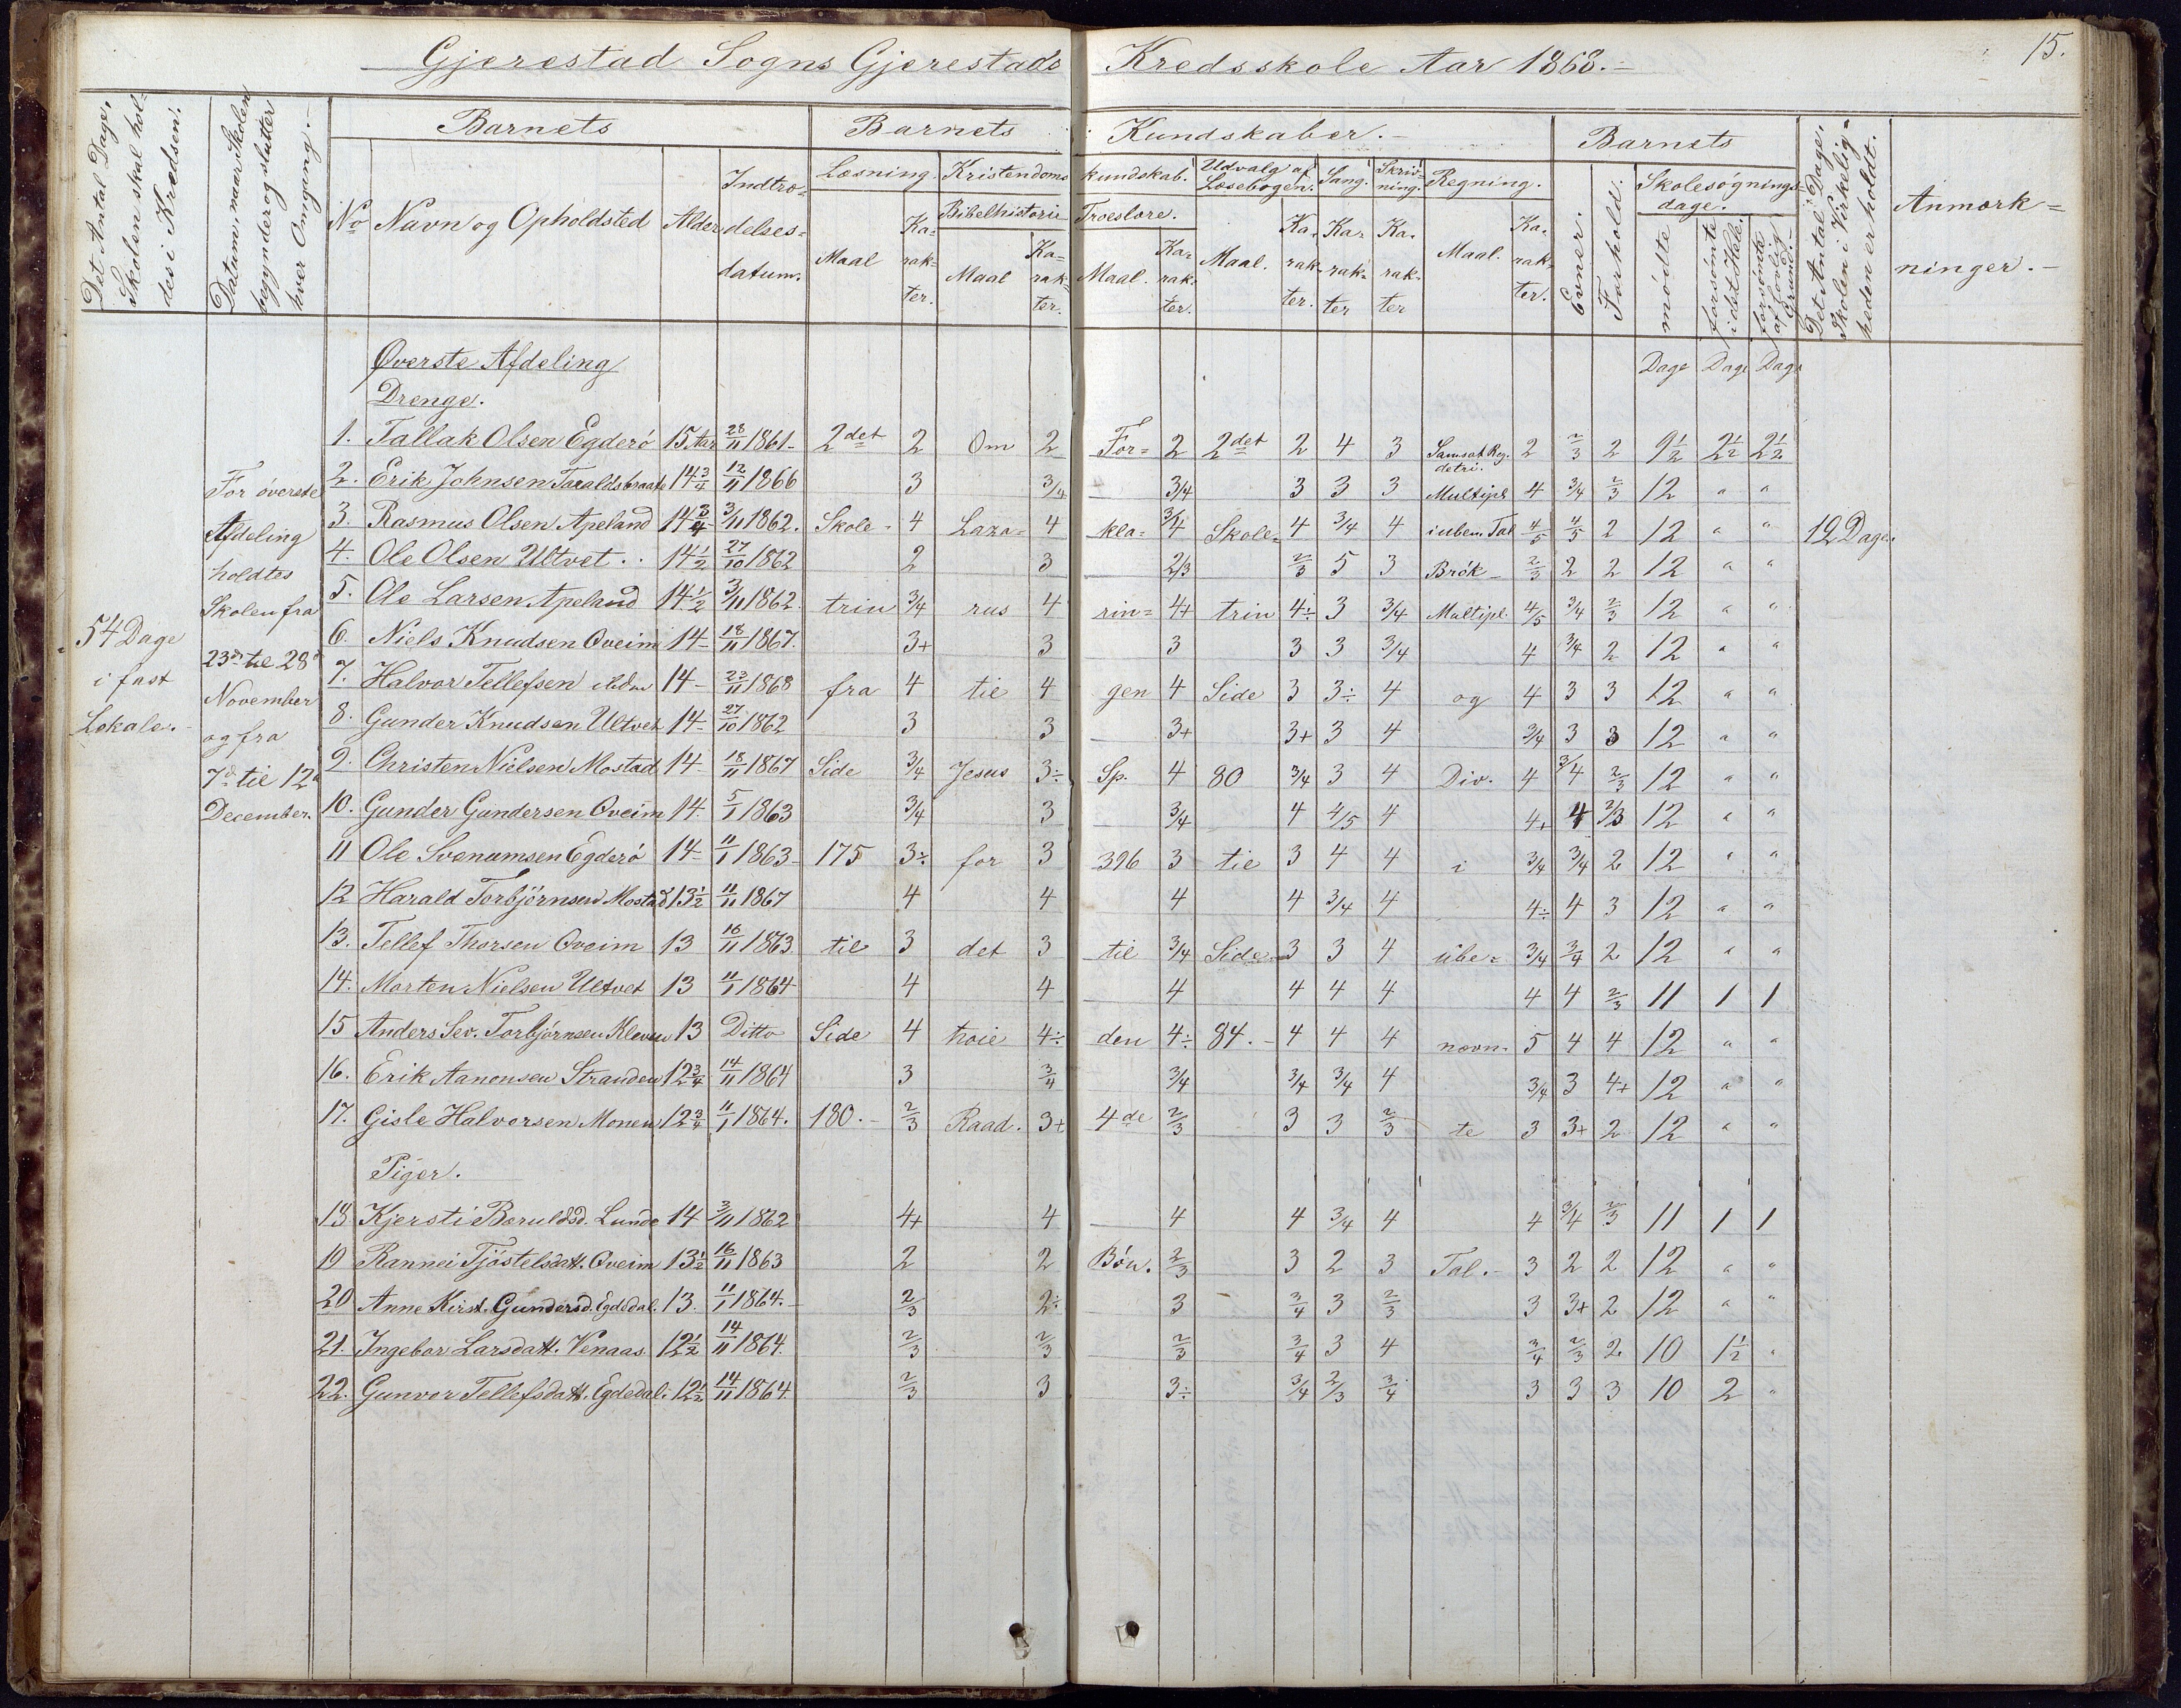 Gjerestad Sogns Gjerestads Kredsskole Aar 1868.-
15.
Det Antal Dage,
Skolen skal hol-
des i Kredsen.
Datum, naar Skolen
begynder og slutter
hver Omgang.-
Barnets
Barnets Kundskaber.-
Barnets
Det Antal Dage,
Skolen i Virkelig-
heden er holdt.
Anmærk=
ninger.-
No Navn og Opholdsted Alder Indtræ-
delses-
datum.
Læsning. Kristendoms kundskab. Udvalg af Læsebogen. Sang. Skriv-
ning. Regning.
Bibelhistorie Troeslære.
Maal Ka-
rak-
ter. Maal Ka-
rak-
ter. Maal. Ka-
rak-
ter. Maal. Ka-
rak-
ter. Ka-
rak-
ter Ka-
rak-
ter Maal. Ka-
rak-
ter.
Evner. Forhold. Skolesøgnings-
dage.
mødte forsømte
i det Hele. forsømte
af lovlig
Grund.-
Dage Dage Dage
Øverste Afdeling
Drenge.
54 Dage
i fast
Lokale.-
For øverste
Afdeling
holdtes
Skolen fra
23d til 28d
November
og fra
7d til 12d
December.
1. Tallak Olsen Egderø 15 Aar 28/11 1861- 2det 2 Om 2 For= 2 2det 2 4 3 Samsat Reg.
detri. 2 2/3 2 9 1/2 2 1/2 2 1/2
2. Erik Johnsen Taraldsbraate 14 3/4 12/11 1866 3 3/4 3/4 3 3 3 Multipl 4 3/4 2/3 12 " "
3. Rasmus Olsen Apeland 14 3/4 3/11 1862. Skole- 4 Laza= 4 kla= 3/4 Skole= 4 3/4 4 i uben. Tal 4/5 4/5 2 12 " " 12 Dage.
4. Ole Olsen Ultvet.. 14 1/2 27/10 1862 2 3 2/3 2/3 5 3 Brök- 2/3 2 2 12 " "
5. Ole Larsen Apeland 14 1/2 3/11 1862. trin 3/4 rus 4 rin= 4+ trin 4÷ 3 3/4 Multipl. 4/5 3/4 2/3 12 " "
6. Niels Knudsen Oveim 14- 18/11 1867. 3+ 3 3 3 3 3/4 4 3/4 2 12 " "
7. Halvor Tellefsen ibdm 14- 23/11 1868 fra 4 til 4 gen 4 Side 3 3÷ 4 og 4 3 3 12 " "
8. Gunder Knudsen Ultvet 14- 27/10 1862 3 3 3+ 3+ 3 4 3/4 3 3 12 " "
9. Christen Nielsen Mostad 14- 18/11 1867 Side 3/4 Jesus 3÷ Sp. 4 80 3/4 3 4 Div. 4 3/4 2/3 12 " "
10. Gunder Gundersen Oveim 14. 5/1 1863 3/4 3 3/4 4 4/5 4 4+ 4 2/3 12 " "
11 Ole Svenumsen Egderø 14- 11/1 1863- 175 3÷ for 3 396 3 til 3 4 4 i 3/4 3/4 2 12 " "
12 Harald Torbjörnsen Mostad 13 1/2 11/11 1867 4 4 4 4 3/4 4 4÷ 4 3 12 " "
13. Tellef Thorsen Oveim 13 16/11 1863. til 3 det 3 til 3/4 Side 3 3 4 ube= 3/4 3/4 2 12 " "
14. Morten Nielsen Ultvet 13 11/1 1864 4 4 4 4 4 4 4 4 2/3 11 1 1
15 Anders Sev. Torbjörnsen Kleven 13 Ditto Side 4 høie 4÷ den 4÷ 84.- 4 4 4 nævn- 5 4 4 12 " "
16. Erik Aanonsen Stranden 12 3/4 14/11 1864 3 3/4 3/4 3/4 3/4 4 3/4 3 4+ 12 " "
17. Gisle Halvorsen Monen 12 3/4 11/1 1864. 180.- 2/3 Raad. 3+ 4de 2/3 3 3 2/3 te 3 3+ 2 12 " "
Piger.
18 Kjersti Beruldsd. Lunde 14 3/11 1862 4+ 4 4 4 3/4 4 4 3/4 2/3 11 1 1
19 Rannei Tjöstelsdatt. Oveim 13 1/2 16/11 1863 2 2 Bön. 2/3 3 2 3 Tal.- 3 2 2 12 " "
20 Anne Kirst. Gundersd. Egdedal. 13. 11/1 1864.- 2/3 2÷ 3 3/4 3 2/3 3 3+ 2 12 " "
21. Ingebor Larsdatt. Venaas 12 1/2 14/11 1864. 2/3 2/3 2/3 3/4 3 4 3/4 2/3 2 10 1 1/2 "
22. Gunvor Tellefsdatt. Egdedal. 12 1/2 14/11 1864. 2/3 3 3÷ 3/4 2/3 3/4 3 3 3 10 2 "